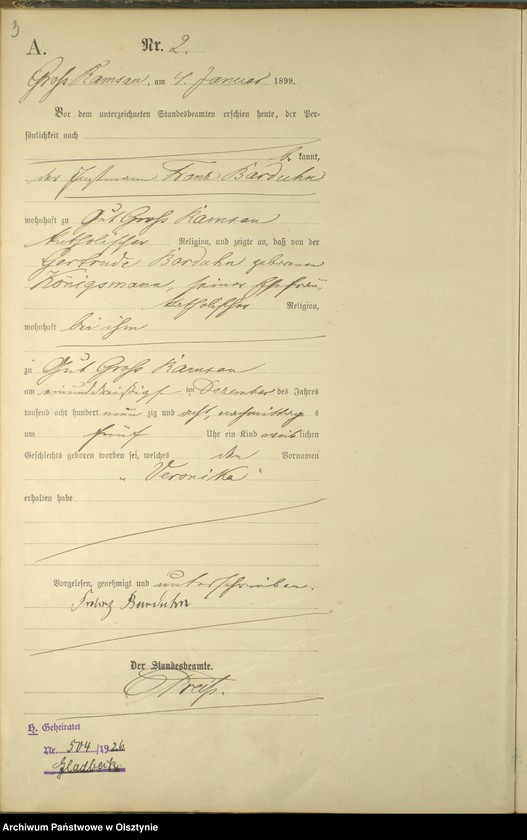 3
A. Nr. 2.
Groß Ramsau, am 4. Januar 1899.
Vor dem unterzeichneten Standesbeamten erschien heute, der Per-
sönlichkeit nach
be kannt,
der Franz Barduhn
wohnhaft zu Gut Groß Ramsau
katholischer Religion, und zeigte an, daß von der
Gertrude Barduhn geborenen
Königsmann, seiner Ehefrau,
katholischer Religion,
wohnhaft bei ihm
zu Gut Groß Ramsau
am einunddreißigsten Dezember des Jahres
tausend acht hundert neun zig und acht, nachmittags
um fünf Uhr ein Kind weiblichen
Geschlechts geboren worden sei, welches den Vornamen
„Veronika“
erhalten habe
Vorgelesen, genehmigt und unterschrieben.
Franz Barduhn
Der Standesbeamte.
H. Geheiratet
Nr. 504/1926
Gladbeck
Archiwum Państwowe w Olsztynie